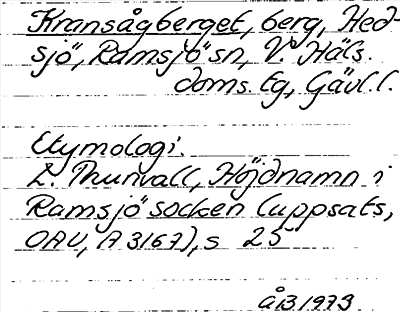 Kransågberget, berg, Hed-
sjö, Ramsjö sn, V. Häls.
doms. tg, Gävl. l.
Etymologi.
L. Thunvall, Höjdnamn i
Ramsjö socken (uppsats,
OAU, A 3167), s 25
ÅB 1973